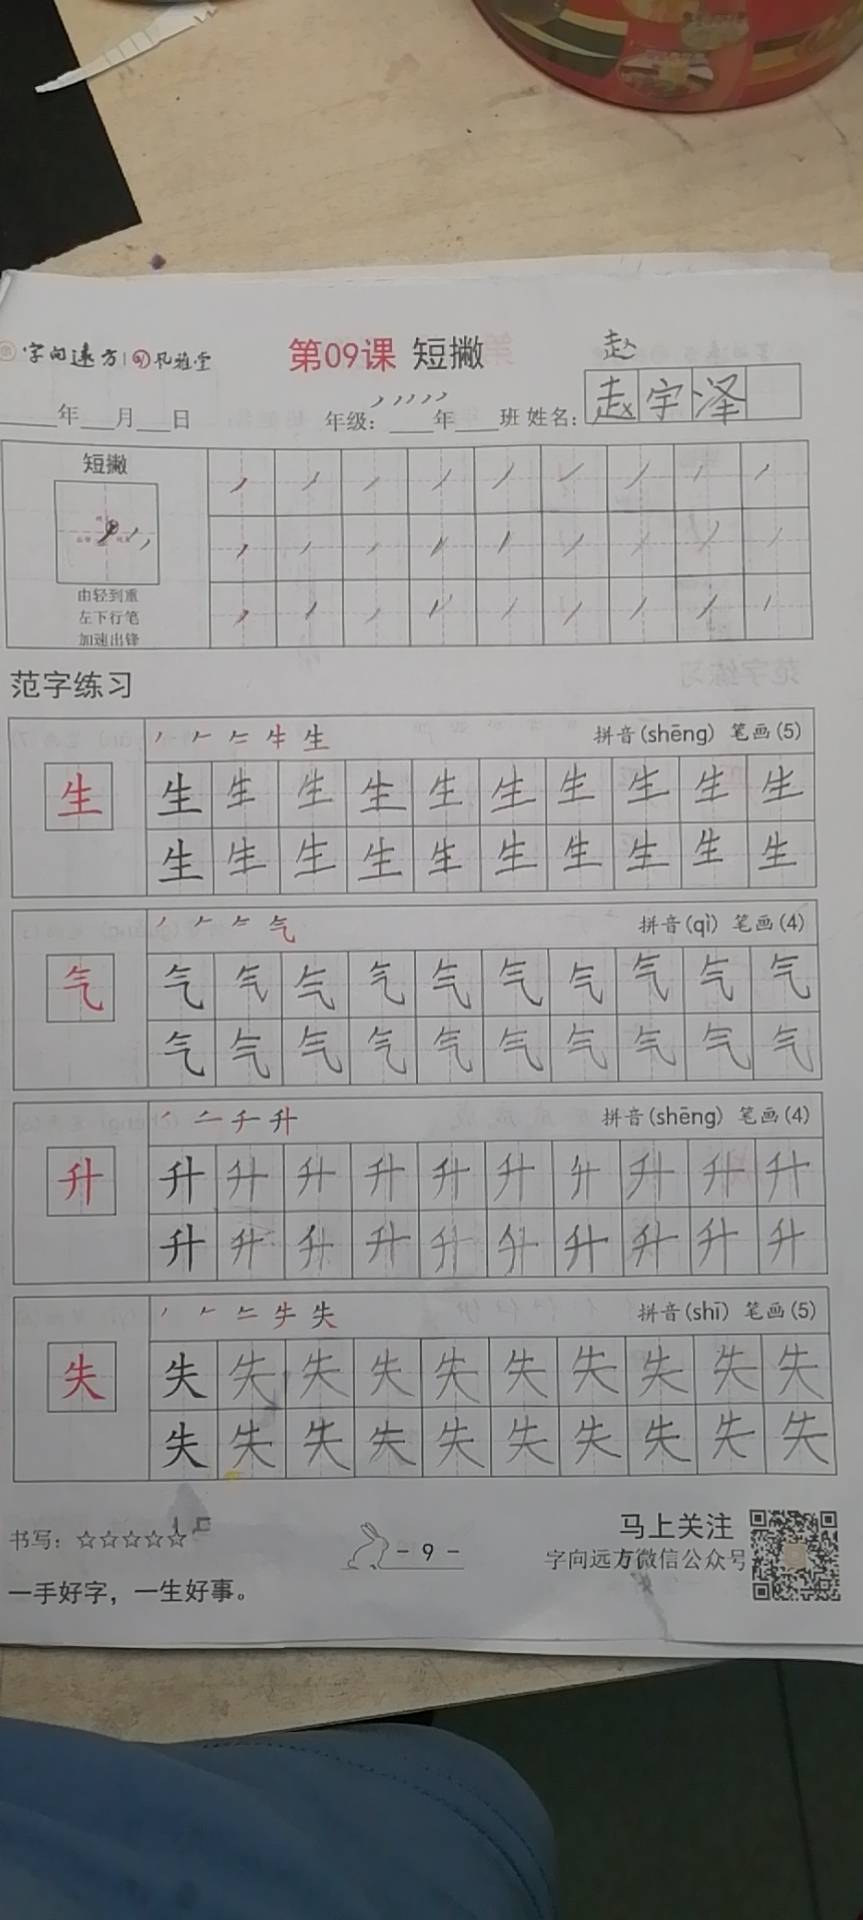 字向远方 | 风雅堂
第09课 短撇
赵
年 月 日 年级: 年 班 姓名: 赵宇泽
短撇
由轻到重
左下行笔
加速出锋
范字练习
生 拼音(shēng) 笔画(5)
生 生 生 生 生 生 生 生 生 生 生
生 生 生 生 生 生 生 生 生 生
气 拼音(qì) 笔画(4)
气 气 气 气 气 气 气 气 气 气 气
气 气 气 气 气 气 气 气 气 气
升 拼音(shēng) 笔画(4)
升 升 升 升 升 升 升 升 升 升 升
升 升 升 升 升 升 升 升 升 升
失 拼音(shī) 笔画(5)
失 失 失 失 失 失 失 失 失 失 失
失 失 失 失 失 失 失 失 失 失
书写: ☆☆☆☆☆
- 9 -
马上关注
字向远方微信公众号
一手好字，一生好事。